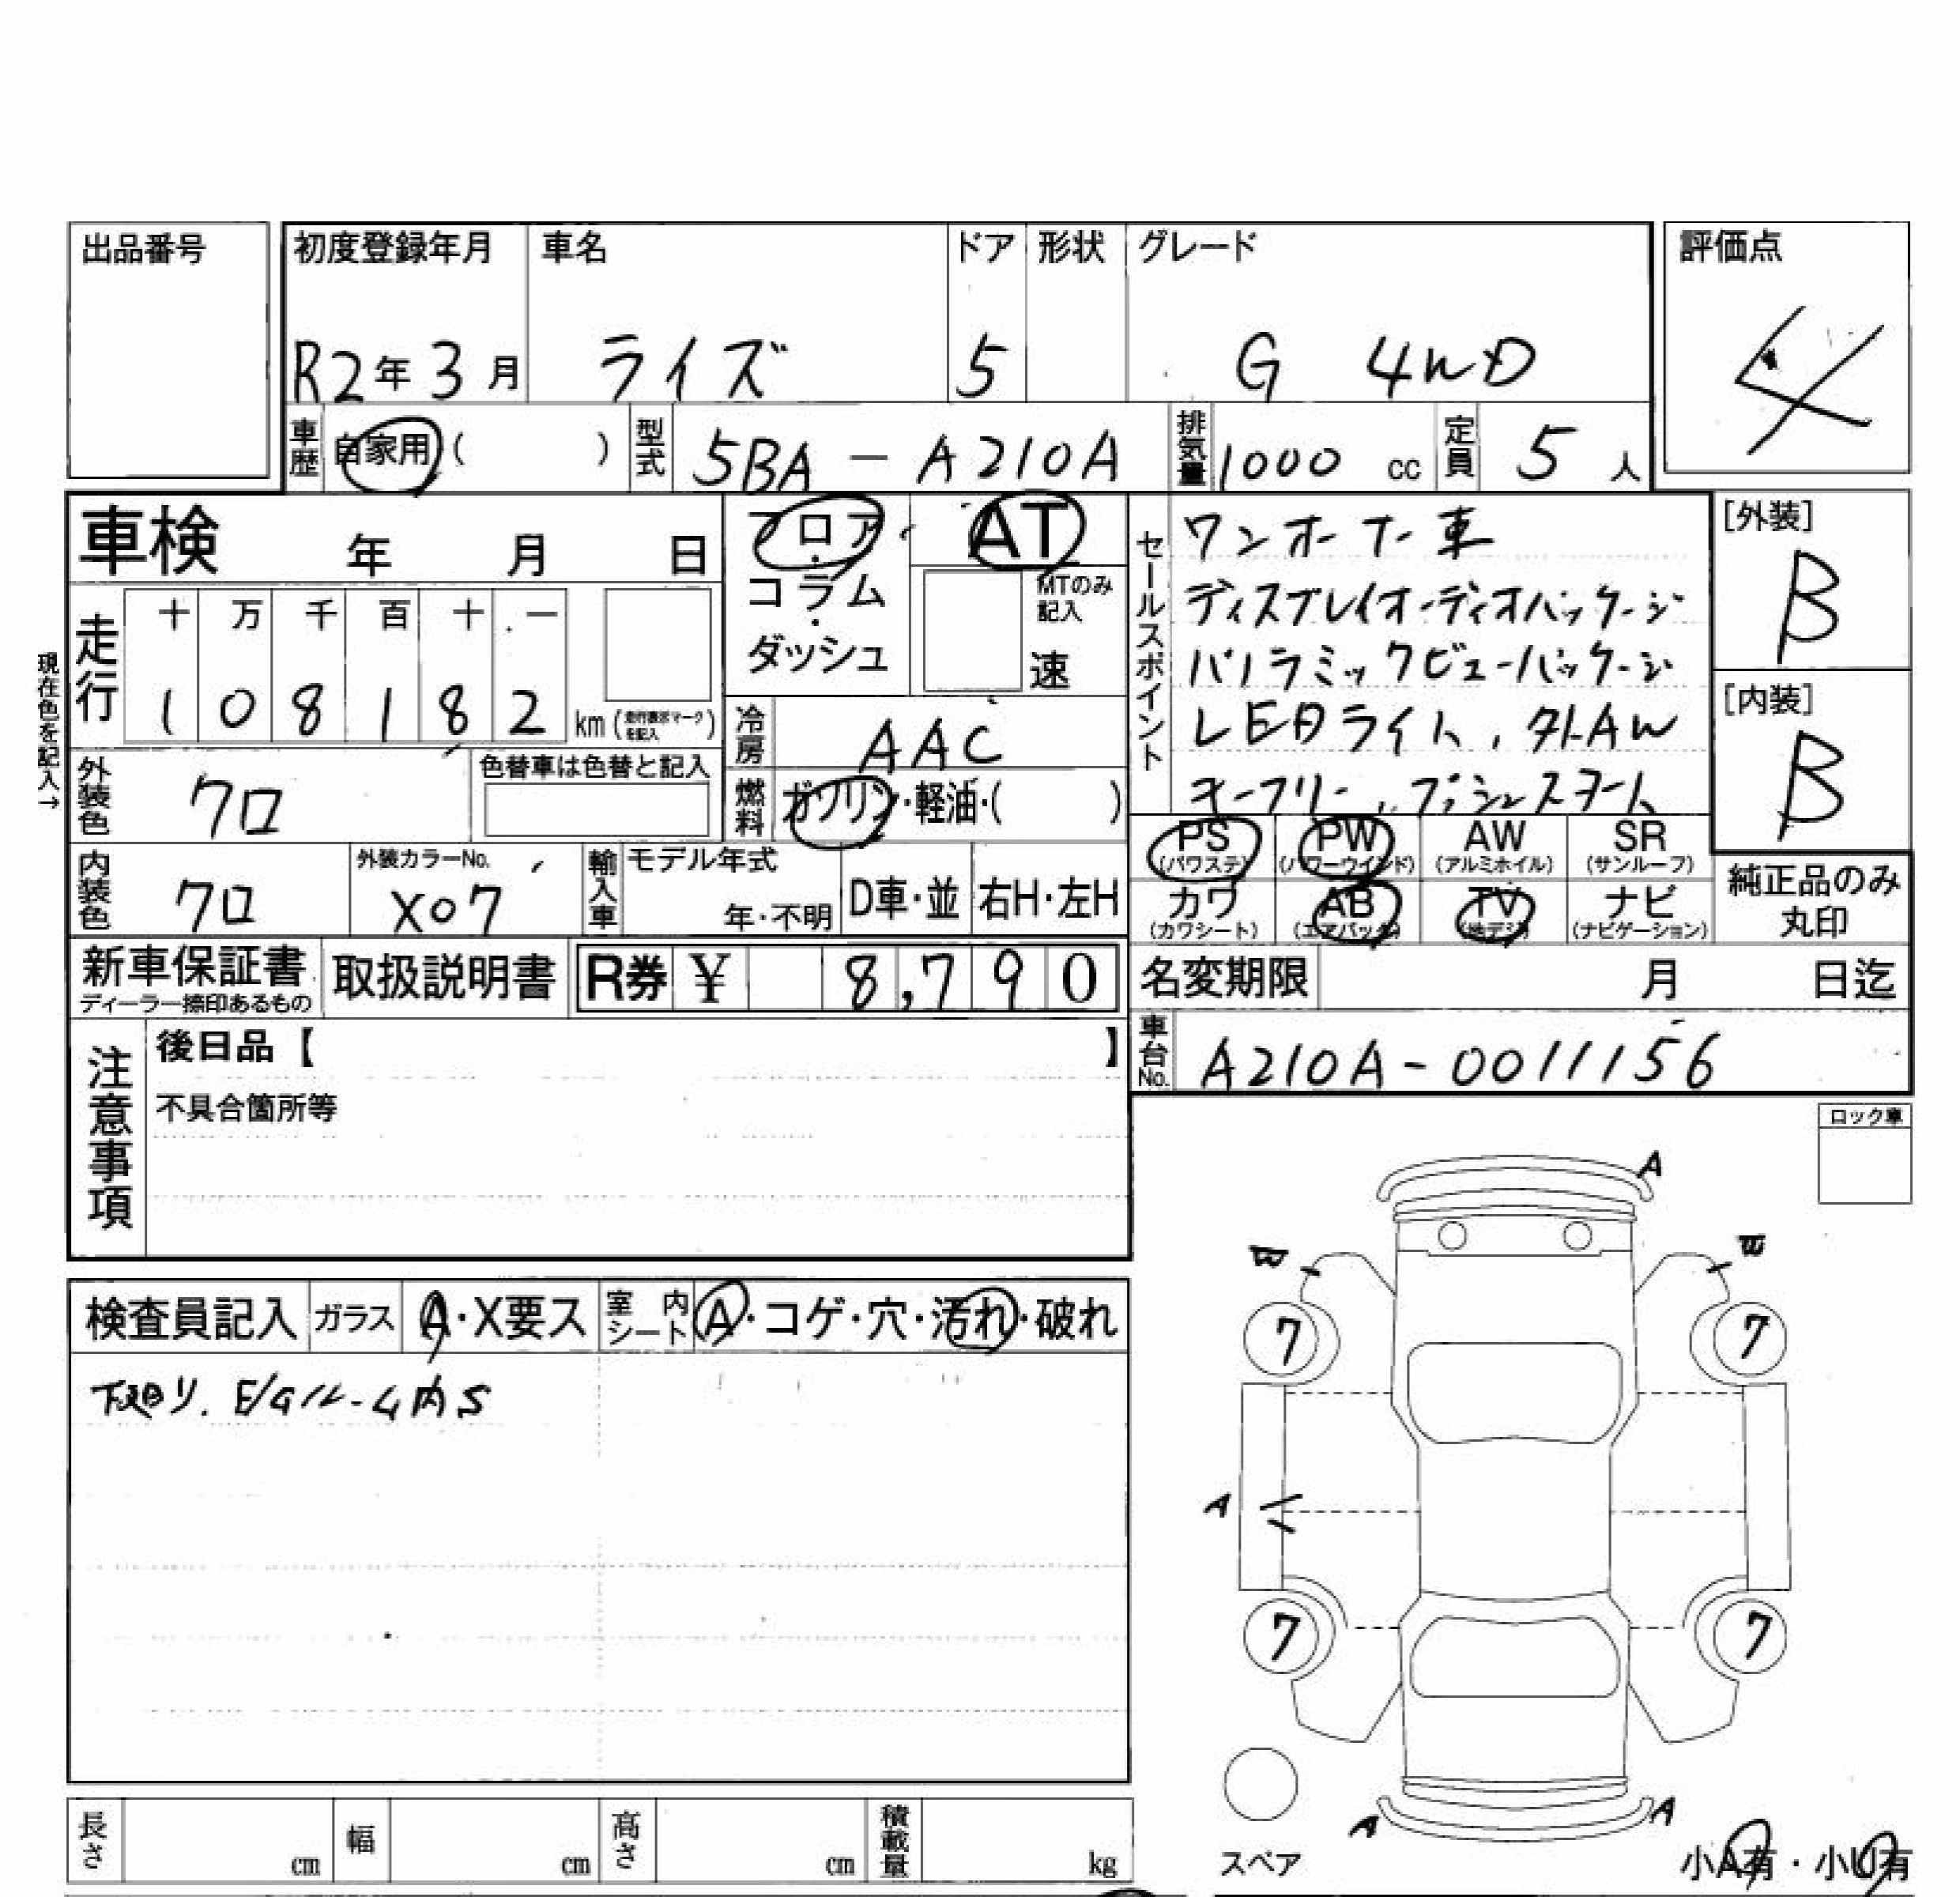 出品番号
初度登録年月 車名 ドア 形状 グレード
評価点
R2年3月 ライズ 5 G 4WD
4
車歴 自家用( ) 型式 5BA-A210A 排気量 1000 cc 定員 5 人
車検 年 月 日
フロア・コラム・ダッシュ
AT
MTのみ記入
速
セールスポイント
ワンオーナー車
ディスプレイオーディオパッケージ
パノラミックビューパッケージ
LEDライト、外AW
キーフリー、プッシュスタート
[外装]
B
[内装]
B
現在色を記入→
走行 十 万 千 百 十 一
1 0 8 1 8 2 km(走行表示マークを記入)
冷房 AAC
外装色 クロ 色替車は色替と記入
燃料 ガソリン・軽油・( )
PS(パワステ) PW(パワーウインド) AW(アルミホイル) SR(サンルーフ)
カワ(カワシート) AB(エアバック) TV(地デジ) ナビ(ナビゲーション)
純正品のみ丸印
内装色 クロ 外装カラーNo. X07 輸入車 モデル年式 年・不明 D車・並 右H・左H
新車保証書 ディーラー捺印あるもの 取扱説明書 R券 ¥ 8,790
名変期限 月 日迄
車台No. A210A-0011156
注意事項
後日品【 】
不具合箇所等
ロック車
検査員記入 ガラス A・X要ス 室内シート A・コゲ・穴・汚れ・破れ
下廻り.
A
7 7
A
7 7
A A
スペア
小A有・小U有
長さ cm 幅 cm 高さ cm 積載量 kg